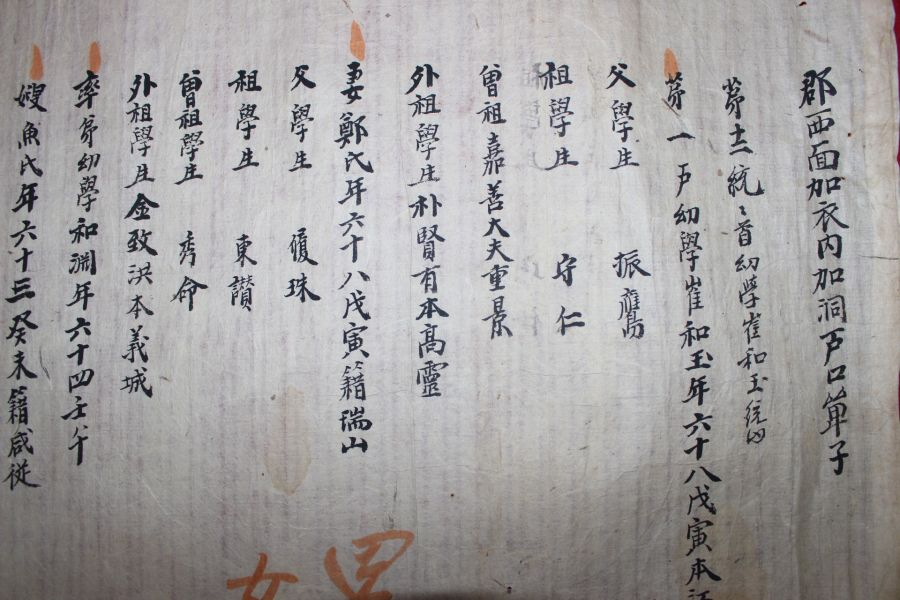 郡西面加衣內加洞戶口單子
第十二統統首幼學崔和玉統內
第一戶幼學崔和玉年六十八戊寅本
父學生 振鷹
祖學生 守仁
曾祖嘉善大夫重景
外祖學生朴賢有本高靈
妻鄭氏年六十八戊寅籍瑞山
父學生 復珠
祖學生 東讚
曾祖學生 秀命
外祖學生金致洪本義城
率弟幼學和淵年六十四壬午
嫂魚氏年六十三癸未籍咸從
男
女